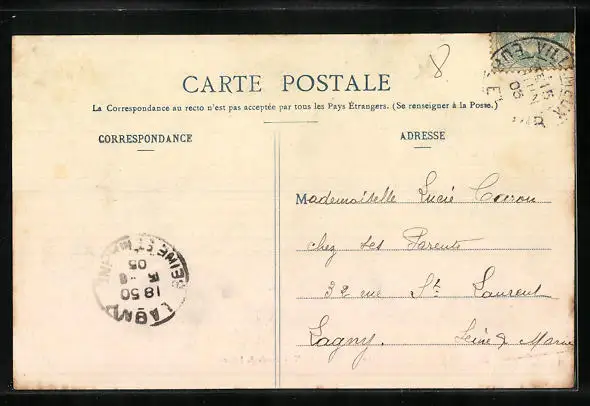 8
CARTE POSTALE
La Correspondance au recto n'est pas acceptée par tous les Pays Étrangers. (Se renseigner à la Poste.)
CORRESPONDANCE
ADRESSE
Mademoiselle Lucie Caron
chez ses Parents
32 rue St. Laurent
Lagny. Seine & Marne
LAGNY
18 50
05
SEINE ET MARNE
15
05